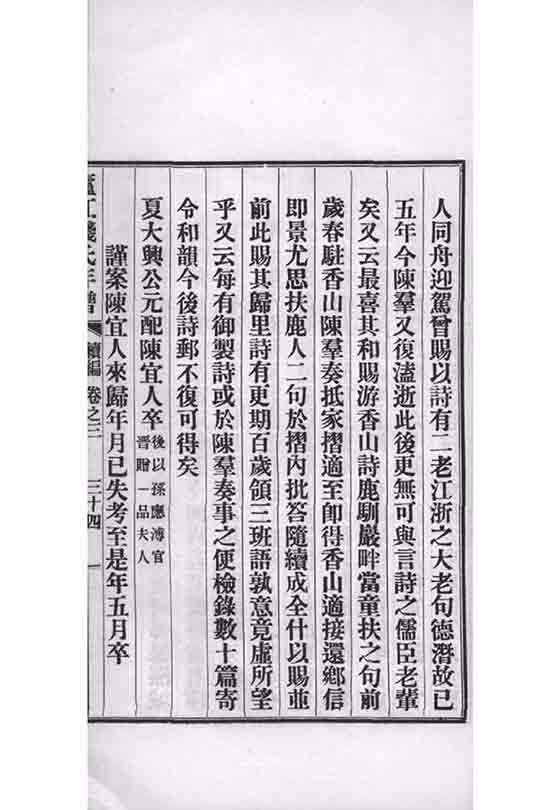 人同舟迎駕曾賜以詩有二老江浙之大老句德潛故已
五年今陳羣又復溘逝此後更無可與言詩之儒臣老輩
矣又云最喜其和賜游香山詩鹿馴巖畔當童扶之句前
歲春駐香山陳羣奏抵家摺適至卽得香山適接還鄉信
即景尤思扶鹿人二句於摺內批答隨續成全什以賜並
前此賜其歸里詩有更期百歲領三班語孰意竟虛所望
乎又云每有御製詩或於陳羣奏事之便檢錄數十篇寄
令和韻今後詩郵不復可得矣
夏大興公元配陳宜人卒
後以孫應溥官
晋贈一品夫人
謹案陳宜人來歸年月已失考至是年五月卒
廬江錢氏年譜 續編 卷之三 三十四